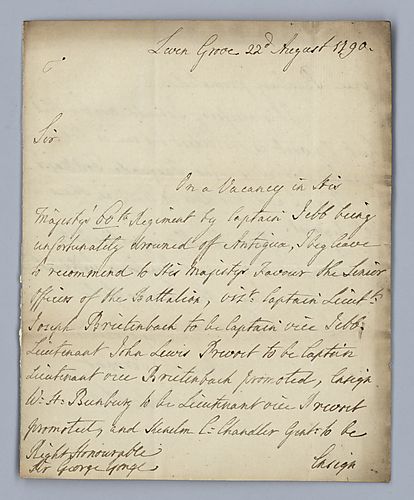 Leven Grove 22d August 1790.
Sir
On a Vacancy in His
Majesty's 60th Regiment by Captain Jebb being
unfortunately drowned of Antigua, I beg leave
to recommend to His Majesty's Favour the Senior
Officers of the Battalion, vizt. Captain Lieutt.
Joseph Brietenbach to be Captain vice Jebb
Lieutenant John Lewis Prevost to be Captain
Lieutenant vice Brietenbach promoted, Ensign
Wm. H. Bunbury to be Lieutenant vice Prevost
promoted, and C. Chandler Gent: to be
Right Honourable
Sir George Yonge
Ensign